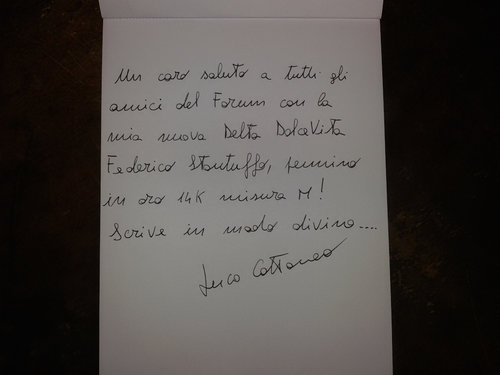 Un caro saluto a tutti gli
amici del Forum con la
mia nuova Delta DolceVita
Federico Stantuffo, pennino
in oro 14K misura M!
Scrive in modo divino....
Luca Cattaneo